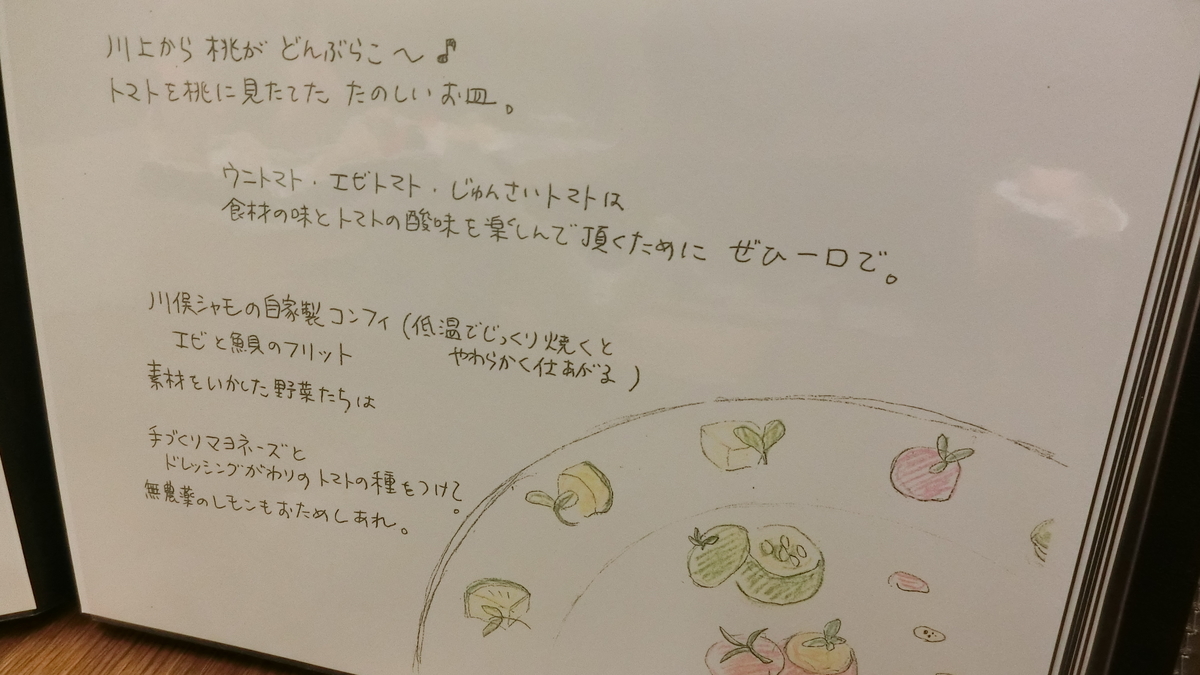 川上から 桃が どんぶらこ～♪
トマトを桃に見たてた たのしいお皿。
ウニトマト・エビトマト・じゅんさいトマトは
食材の味とトマトの酸味を楽しんで頂くために ぜひ一口で。
川俣シャモの自家製コンフィ（低温でじっくり焼くと
やわらかく仕あがる）
エビと鱼貝のフリット
素材をいかした野菜たちは
手づくりマヨネーズと
ドレッシングがわりのトマトの種をつけて。
無農薬のレモンもおためしあれ。